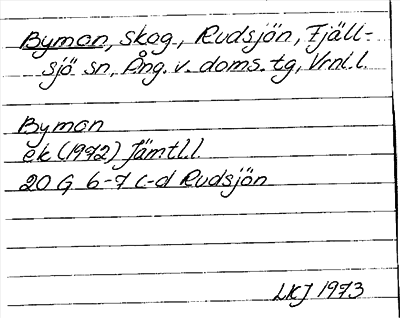 Bymon, skog, Rudsjön, Fjäll-
sjö sn, Ång. v. doms. tg, Vrnl. l.
Bymon
ek (1972) Jämtl. l.
20 G 6-7 c-d Rudsjön
LKJ 1973